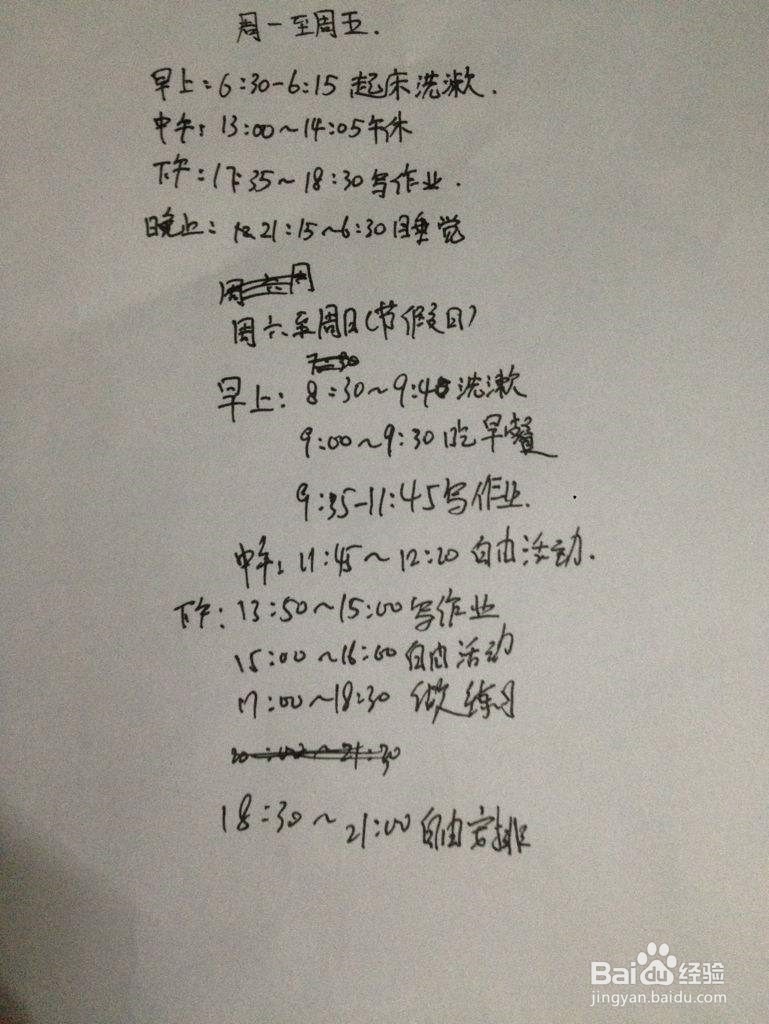 周一至周五.
早上:6:30-6:15 起床洗漱.
中午:13:00~14:05午休
下午:17:35~18:30写作业.
晚上:21:15~6:30睡觉
周六至周日(节假日)
早上:8:30~9:40洗漱
9:00~9:30吃早餐
9:35-11:45写作业.
中午:11:45~12:20自由活动.
下午:13:50~15:00写作业
15:00~16:00自由活动
17:00~18:30 做练习
18:30~21:00自由安排
Baidu经验
jingyan.baidu.com